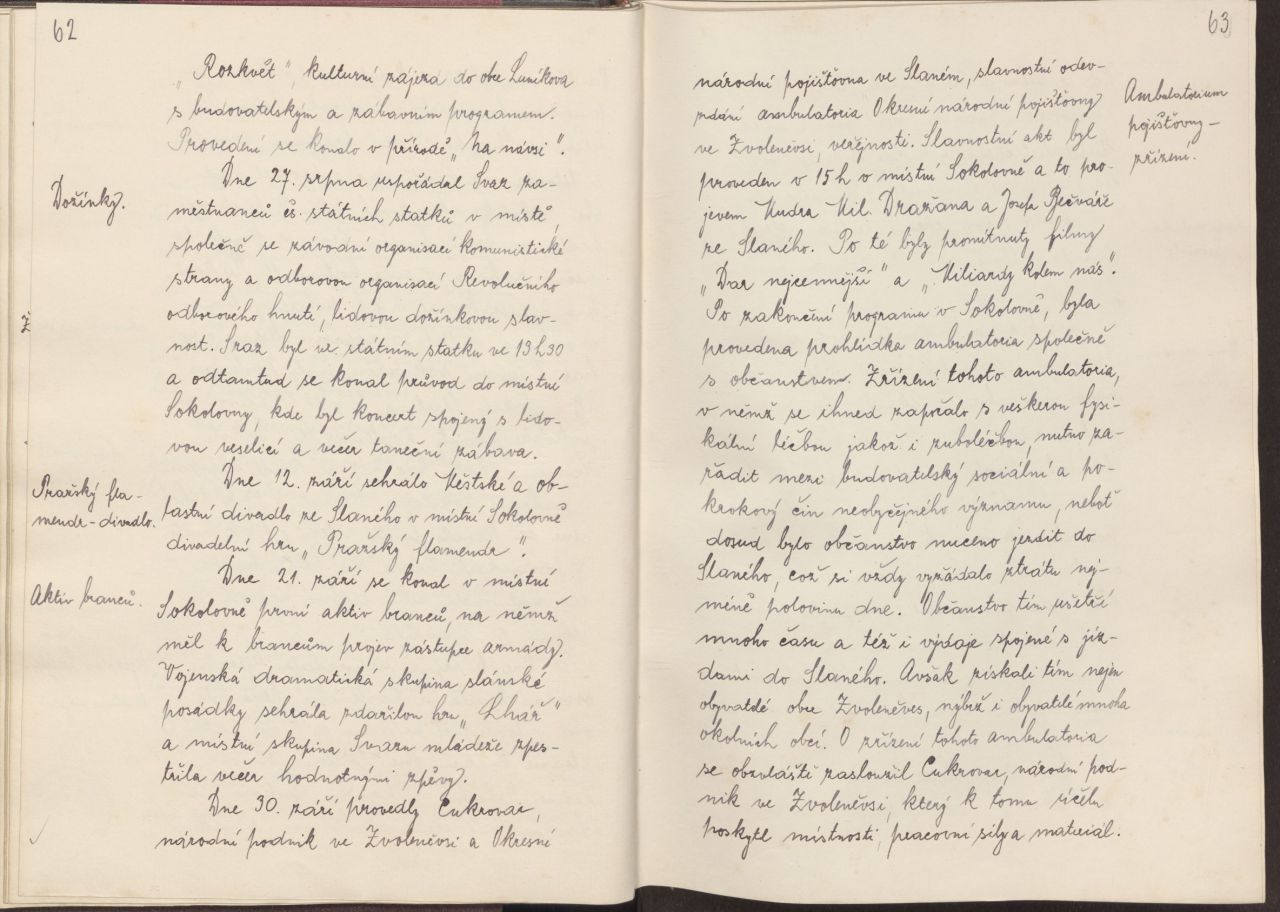 62
„Rozkvět", kulturní zájezd do obce Luníkova
s budovatelským a zábavním programem.
Provedení se konalo v přírodě „Na návsi".
Dožínky.
Dne 27. srpna uspořádal Svaz za-
městnanců čs. státních statků v místě,
společně se závodní organisací komunistické
strany a odborovou organisací Revolučního
odborového hnutí, lidovou dožínkovou slav-
nost. Sraz byl ve státním statku ve 13h30
a odtamtud se konal průvod do místní
Sokolovny, kde byl koncert spojený s lido-
vou veselicí a večer taneční zábava.
Pražský fla-
mendr - divadlo.
Dne 12. září sehrálo Městské a ob-
lastní divadlo ze Slaného v místní Sokolovně
divadelní hru „Pražský flamendr".
Aktiv branců.
Dne 21. září se konal v místní
Sokolovně první aktiv branců, na němž
měl k brancům projev zástupce armády.
Vojenská dramatická skupina slánské
posádky sehrála zdařilou hru „Lhář"
a místní skupina Svazu mládeže zpes-
třila večer hodnotnými zpěvy.
Dne 30. září provedly Cukrovar,
národní podnik ve Zvoleněvsi a Okresní
63
národní pojišťovna ve Slaném, slavnostní odev-
zdání ambulatoria Okresní národní pojišťovny
ve Zvoleněvsi, veřejnosti. Slavnostní akt byl
proveden v 15h v místní Sokolovně a to pro-
jevem Mudra Mil. Dražana a Josefa Bečváře
ze Slaného. Po té byly promítnuty filmy
„Dar nejcennější" a „Miliardy kolem nás".
Po zakončení programu v Sokolovně, byla
provedena prohlídka ambulatoria společně
s občanstvem. Zřízení tohoto ambulatoria,
v němž se ihned započalo s veškerou fysi-
kální léčbou jakož i zuboléčbou, nutno za-
řadit mezi budovatelský sociální a po-
krokový čin neobyčejného významu, neboť
dosud bylo občanstvo nuceno jezdit do
Slaného, což si vždy vyžádalo ztrátu nej-
méně polovinu dne. Občanstvo tím ušetří
mnoho času a též i výdaje spojené s jíz-
dami do Slaného. Avšak získali tím nejen
obyvatelé obce Zvoleněves, nýbrž i obyvatelé mnoha
okolních obcí. O zřízení tohoto ambulatoria
se obzvláště zasloužil Cukrovar, národní pod-
nik ve Zvoleněvsi, který k tomu účelu
poskytl místnosti, pracovní síly a materiál.
Ambulatorium
pojišťovny -
zřízení.